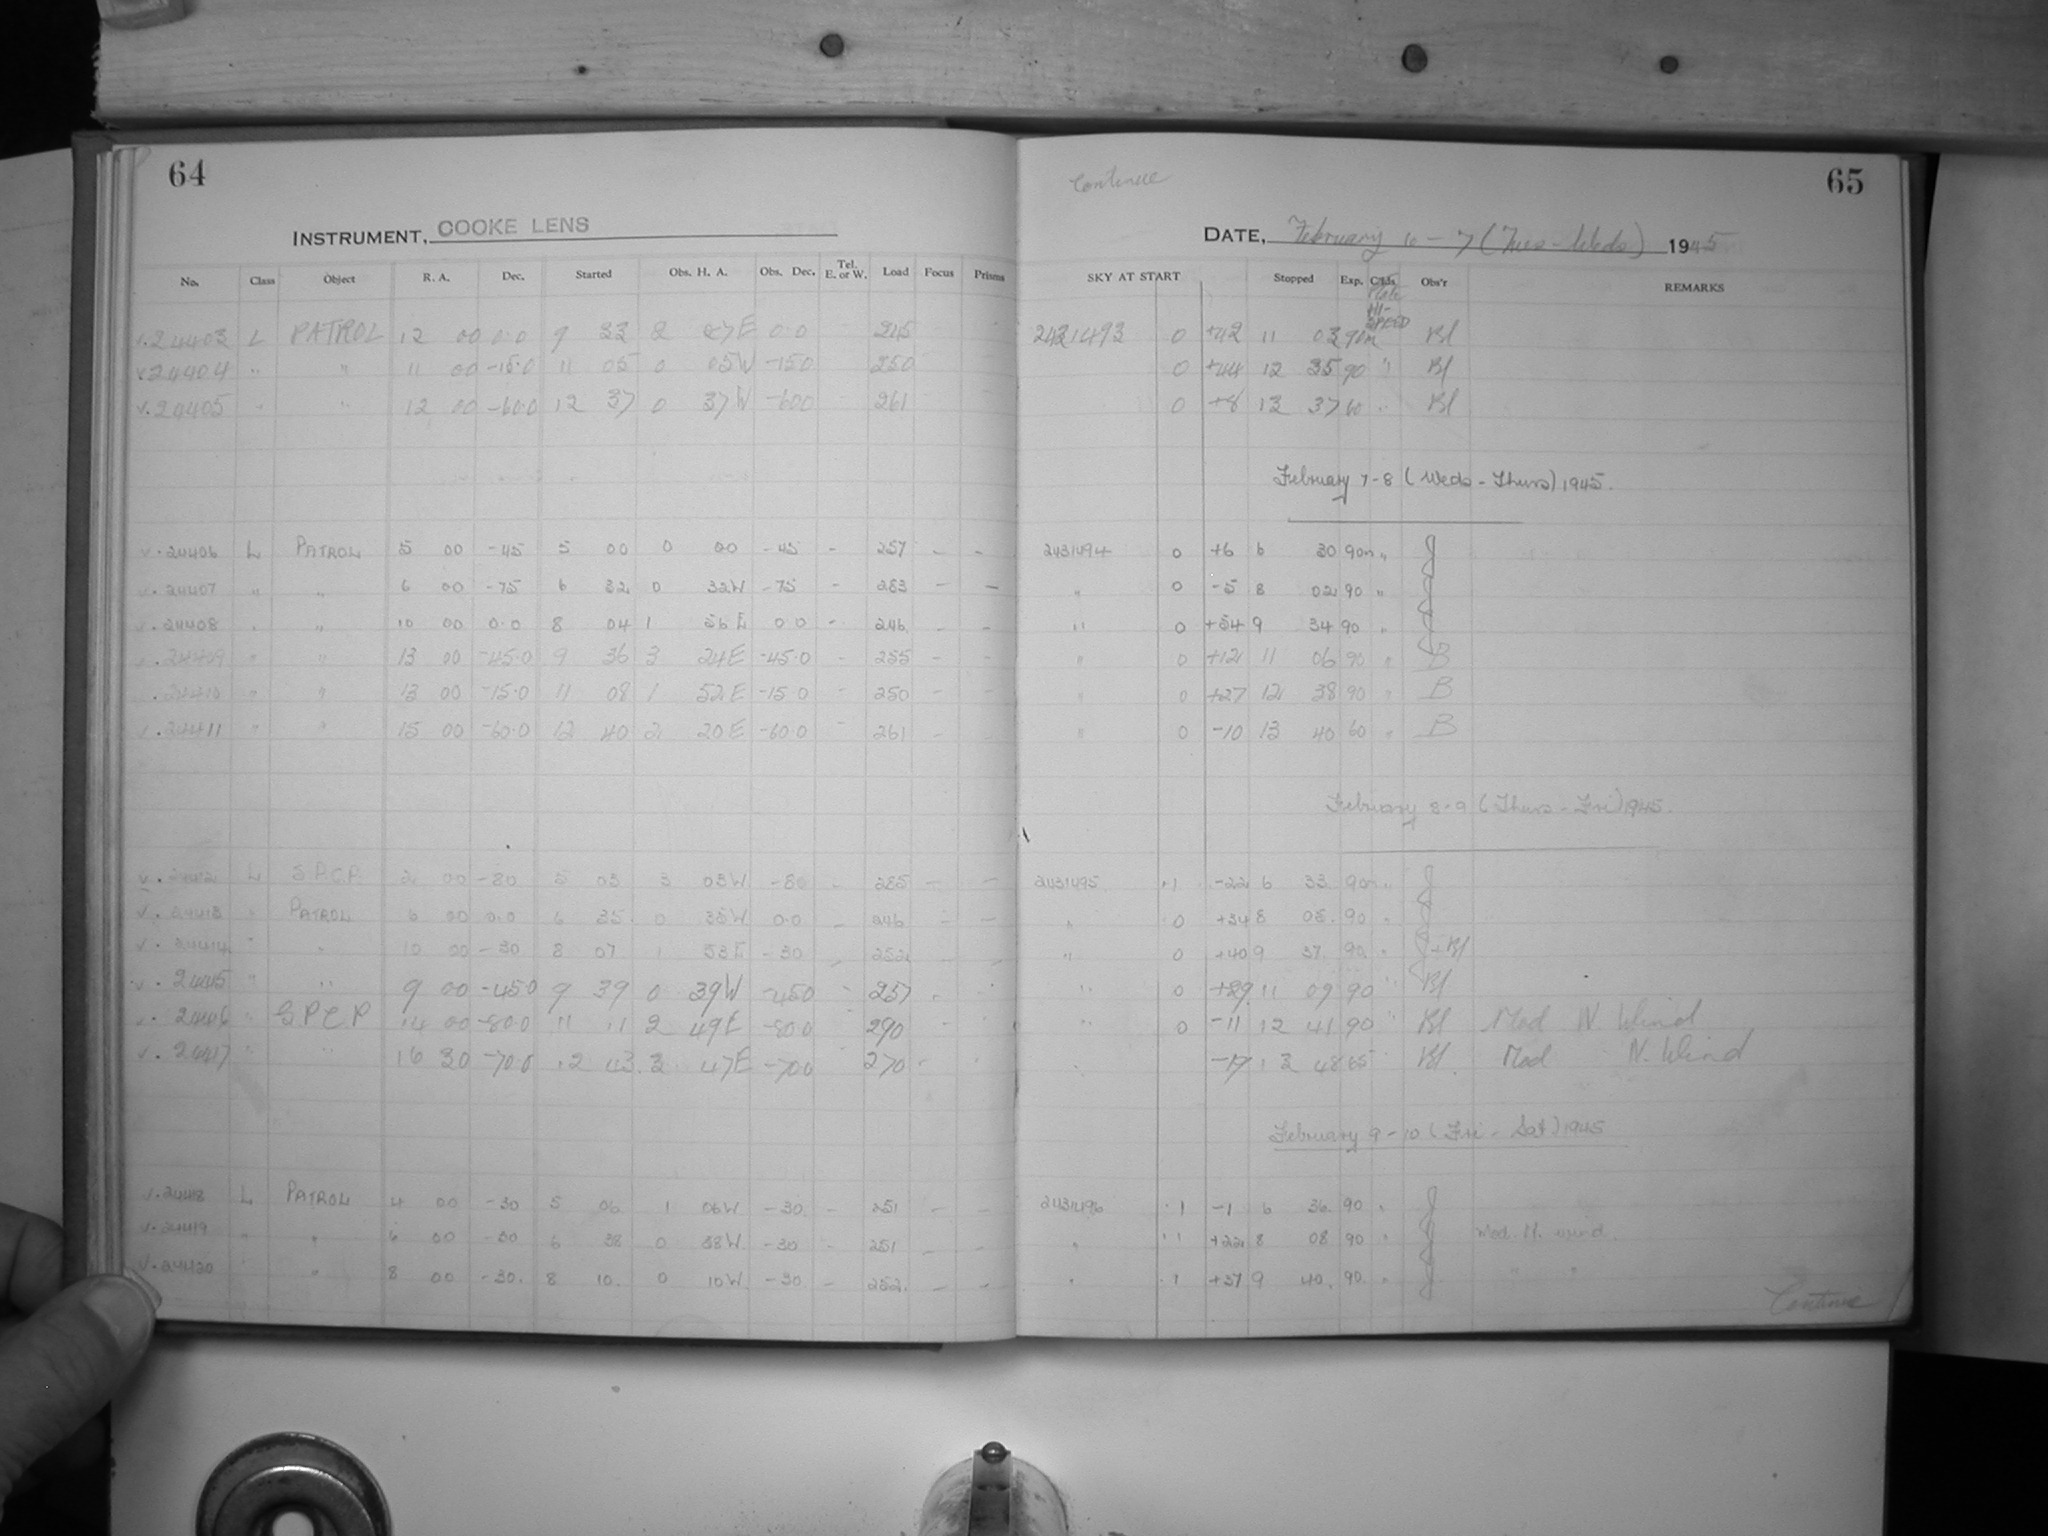 64
INSTRUMENT, COOKE LENS
No. Class Object R. A. Dec. Started Obs. H. A. Obs. Dec. Tel. E. or W. Load Focus Prisms
v.24403 L PATROL 12 00 0.0 9 33 2 27E 0.0 245
v24404 " " 11 00 -15.0 11 05 0 05W -150 250
v.24405 " " 12 00 -60.0 12 37 0 37W -600 261
v.24406 L PATROL 5 00 -45 5 00 0 00 -45 - 257 - -
v.24407 " " 6 00 -75 6 32 0 32W -75 - 283 - -
v.24408 " " 10 00 0.0 8 04 1 56E 0.0 - 246 - -
v.24409 " " 13 00 -45.0 9 36 3 24E -45.0 - 255 - -
.24410 " " 13 00 -15.0 11 08 1 52E -15 0 - 250 - -
v.24411 " " 15 00 -60.0 12 40 2 20E -60.0 - 261 - -
v.24412 L S.P.C.P. 2 00 -80 5 03 3 03W -80 - 285 - -
v.24413 " PATROL 6 00 0.0 6 35 0 35W 0.0 - 246 - -
v.24414 " " 10 00 -30 8 07 1 53E -30 - 252 - -
v.24415 " " 9 00 -450 9 39 0 39W -450 - 257
v.24416 " S P C P 14 00 -80.0 11 11 2 49E -80.0 290
v.24417 " " 16 30 -70.0 12 43 3 47E -700 270
v.24418 L PATROL 4 00 -30 5 06 1 06W -30 - 251 - -
v.24419 " " 6 00 -30 6 38 0 38W -30 - 251 - -
v.24420 " 8 00 -30. 8 10. 0 10W -30 - 252. - -
Continue
65
DATE, February 6-7 (Tues-Weds) 1945
SKY AT START Stopped Exp. Clds. Obs'r REMARKS
Plate
HI-
SPEED
2431493 0 +42 11 03 90m Bl
0 +44 12 35 90 " Bl
0 +8 13 37 60 " Bl
February 7-8 (Weds-Thurs) 1945.
2431494 0 +6 6 30 90m " J
" 0 -5 8 02 90 " J
" 0 +54 9 34 90 " J
" 0 +12 11 06 90 " B
" 0 +27 12 38 90 " B
" 0 -10 13 40 60 " B
February 8-9 (Thurs-Fri) 1945.
2431495 .1 -22 6 33. 90m " J
" 0 +34 8 05. 90 " J
" 0 +40 9 37. 90. " J+Bl
" 0 +29 11 09 90 " Bl
" 0 -11 12 41 90 " Bl Mod N Wind
-17 13 48 65 Bl. Mod N. Wind
February 9-10 (Fri-Sat) 1945
2431496 .1 -1 6 36. 90 " J
" .1 +22 8 08 90 " J Mod. N. wind.
" .1 +37 9 40. 90. " J " "
Continue